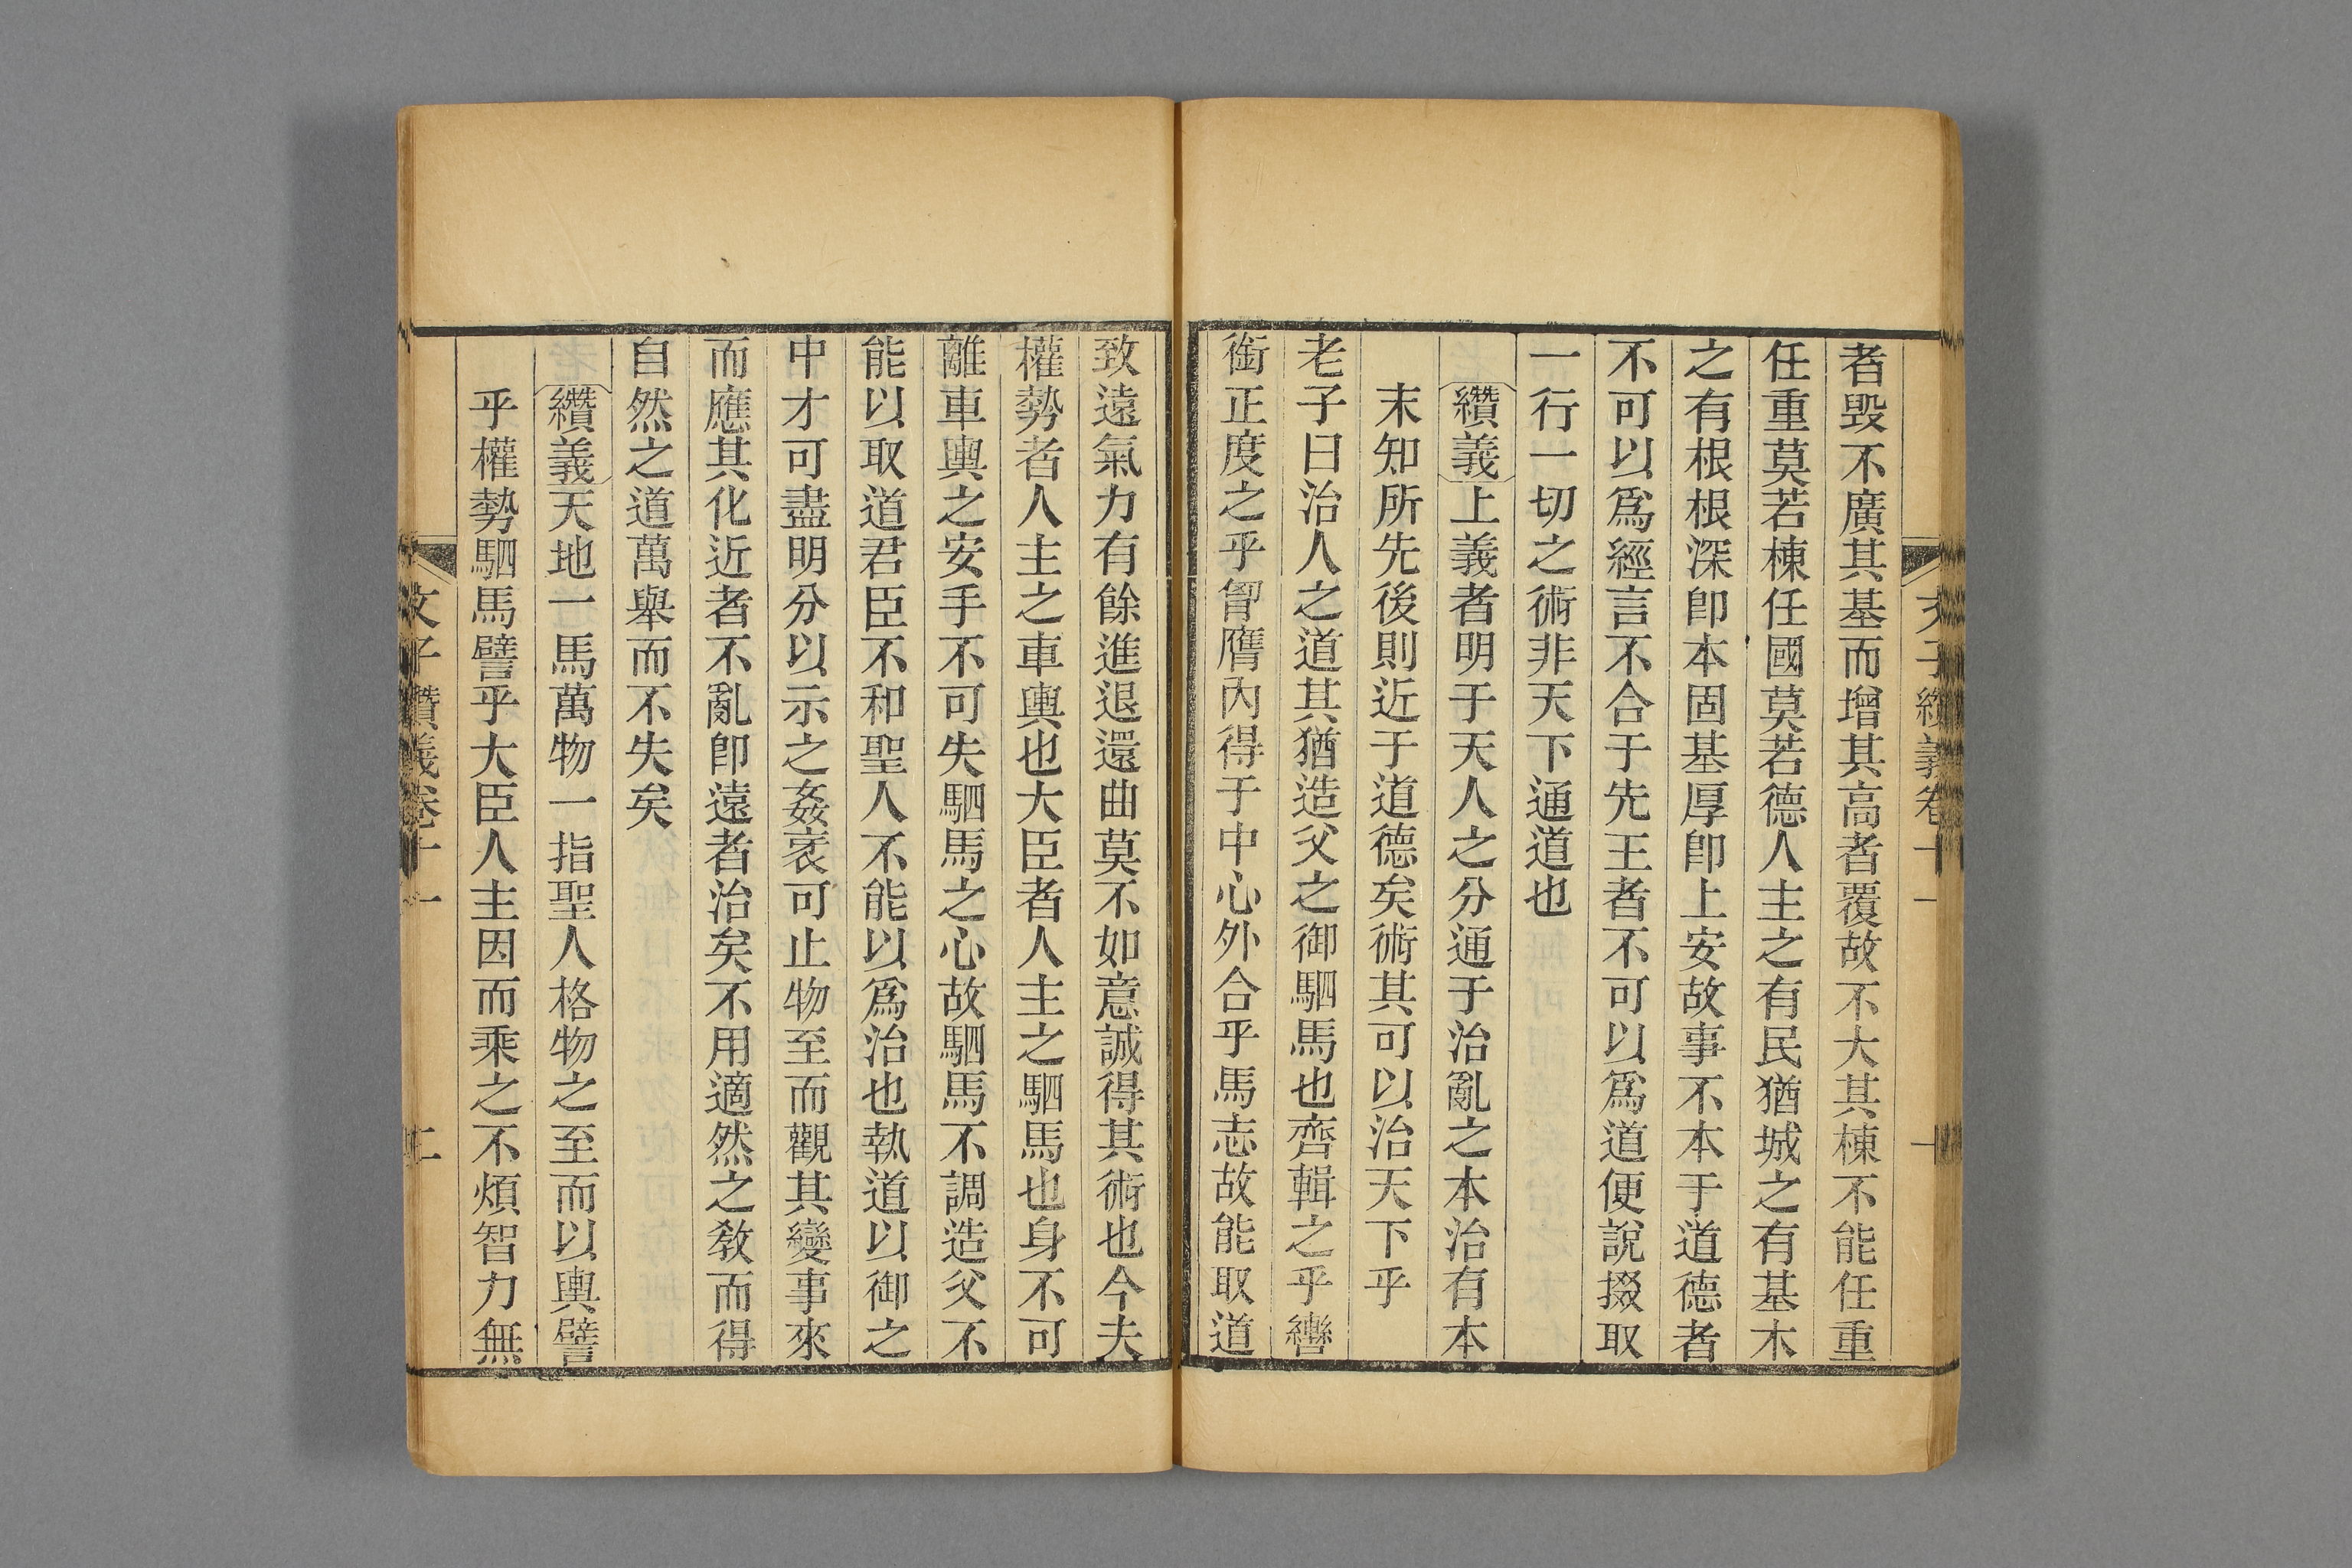 文子纘義卷十一
一
者毁不廣其基而增其高者覆故不大其棟不能任重
任重莫若棟任國莫若德人主之有民猶城之有基木
之有根根深卽本固基厚卽上安故事不本于道德者
不可以爲經言不合于先王者不可以爲道便說掇取
一行一切之術非天下通道也
纘義上義者明于天人之分通于治亂之本治有本
末知所先後則近于道德矣術其可以治天下乎
老子曰治人之道其猶造父之御駟馬也齊輯之乎轡
銜正度之乎胷膺內得于中心外合乎馬志故能取道
致遠氣力有餘進退還曲莫不如意誠得其術也今夫
權勢者人主之車輿也大臣者人主之駟馬也身不可
離車輿之安手不可失駟馬之心故駟馬不調造父不
能以取道君臣不和聖人不能以爲治也執道以御之
中才可盡明分以示之姦衺可止物至而觀其變事來
而應其化近者不亂卽遠者治矣不用適然之敎而得
自然之道萬舉而不失矣
纘義天地一馬萬物一指聖人格物之至而以輿譬
乎權勢駟馬譬乎大臣人主因而乘之不煩智力無
文子纘義卷十一
二